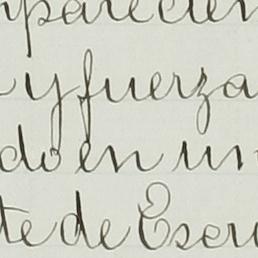 mparecien
y fuerza
do en un
te de Escri